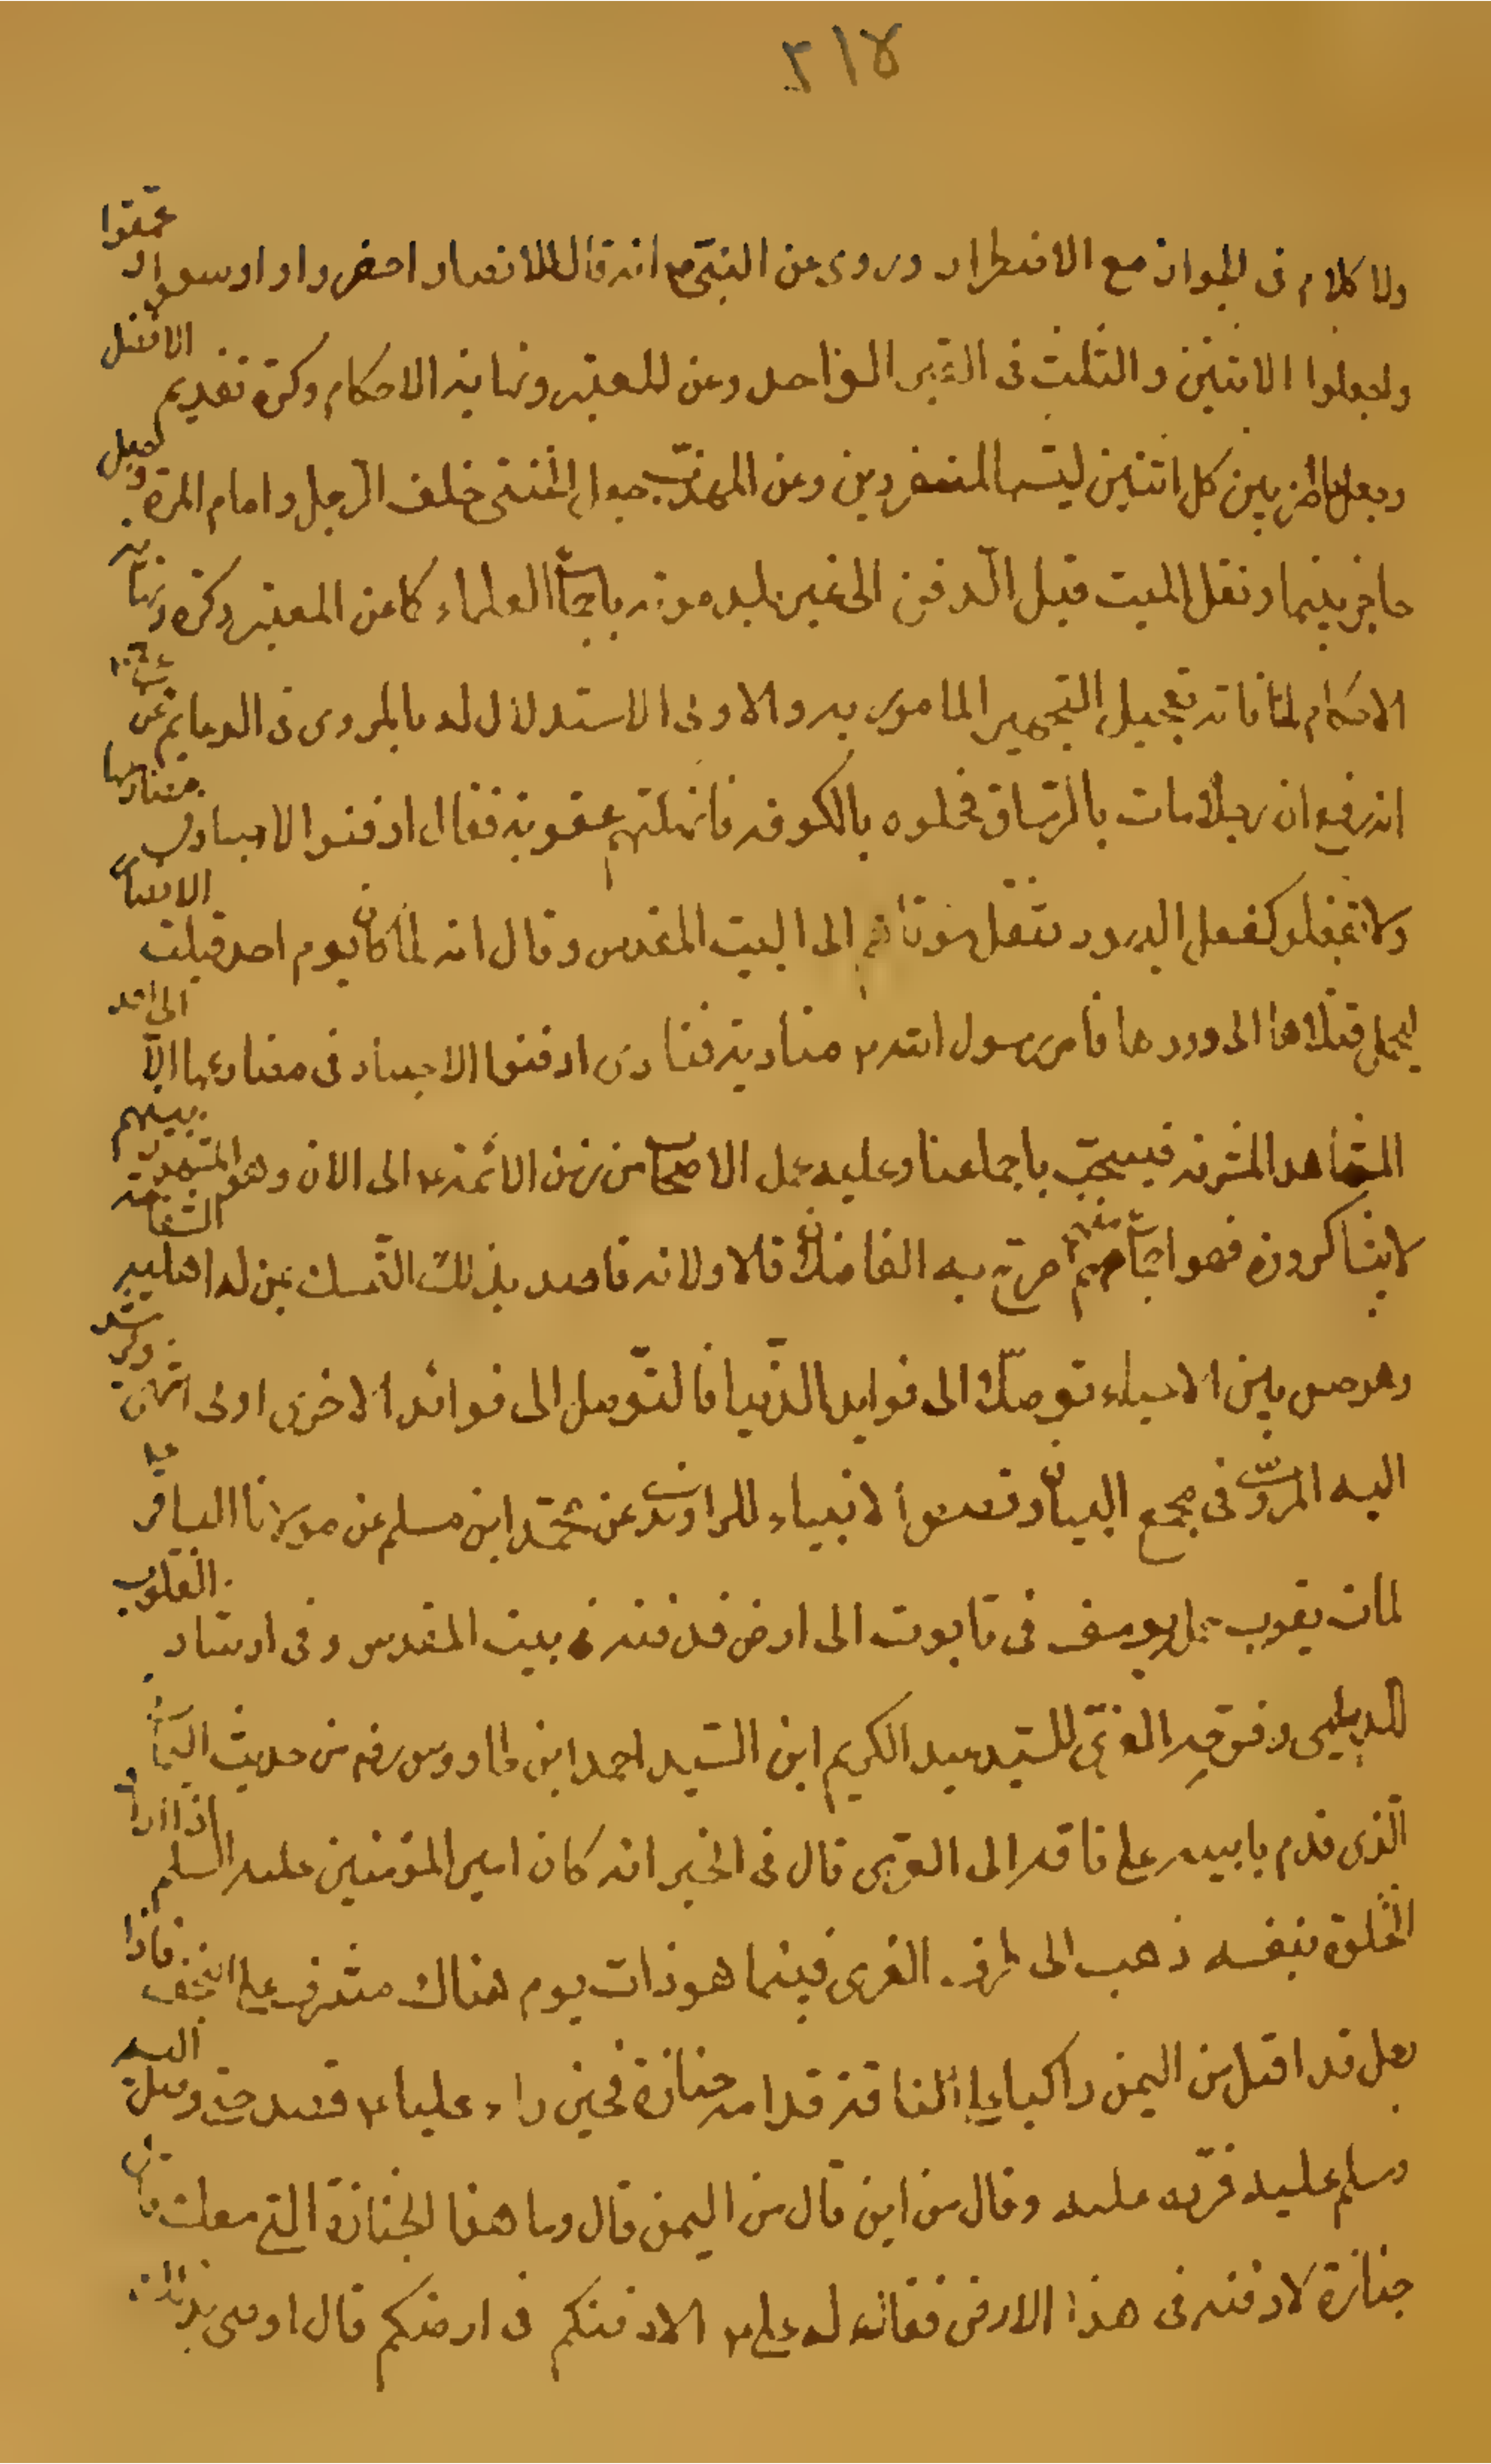 ٢١٧
ولا كلام فى الجواز مع الاضطرار وروى عن النبىّ ص انه قال للانصار احفروا واوسعوا و عمّقوا
واجعلوا الاثنين والثلث فى القبر الواحد وعن المعتبر ونهاية الاحكام وكره تقديم الافضل
وجعل حاجز بين كل اثنين ليشبها المنفردين وعن المهذّب جعل الخنثى خلف الرّجل وامام المرءة وجعل
حاجز بينهما ونقل الميت قبل الدّفن الى غير بلد موته باجماع العلماء كما عن المعتبر وكره ونهاية
الاحكام لمنافاته تعجيل التجهيز المامور به والاولى الاستدلال له بالمروى فى الدعايم عن على ع
انه رفع ان رجلا مات بالرستاق فحملوه بالكوفه فانهكتهم عقوبة فقال ادفنوا الاجساد فى مصارعها
ولا تفعلو كفعل اليهود تنقل موتاهم الى البيت المقدس وقال انه لما كان يوم احد قبلت الانصار
ليحمل قتلاها الى دورها فامر رسول الله ص مناديه فنادى ادفنوا الاجساد فى مصارعها الّا الى احد
المشاهد المشرفه فيستحبّ باجماعنا وعليه عمل الاصحاب من زمن الائمّة ع الى الان وهو المشهور بينهم
لا يتناكرونه فهو اجماع منهم صرّح به الفاضلان قالا ولانه قاصد بذلك التمسك بمن له اهلية الشفاعة
وهو حسن بين الاحياء توصلا الى فوايد الدّنيا فالتّوصل الى فوائد الاخرى اولى
اليه المروىّ فى مجمع البيان وقصص الانبياء للراوندى عن محمّد ابن مسلم عن مولانا الباقر ع
لما مات يعقوب حمل يوسف فى تابوت الى ارض فدفنه فى بيت المقدس وفى ارشاد القلوب
للديلمى وفرحة الغرىّ للسّيد عبد الكريم ابن السّيد احمد ابن طاووس رفع من حديث اليمانى
الّذى قدم بابيه على ناقه الى الغرى قال فى الخبر انه كان امير المؤمنين عليه السلم اذا اراد
الخلوة بنفسه ذهب الى طرف الغرى فبينما هو ذات يوم هناك مشرف على النجف فاذا
رجل قد اقبل من اليمن راكبا على الناقة قدامه جنازة فحين راء عليا ع قصد حتى وصل اليه
وسلم عليه فردّ عليه وقال من اين قال من اليمن قال وما هذا الجنازة التى معك قال
جنازة لادفنه فى هذا الارض فقال له على ع لم لا دفنتم فى ارضكم قال اوصى بذلك